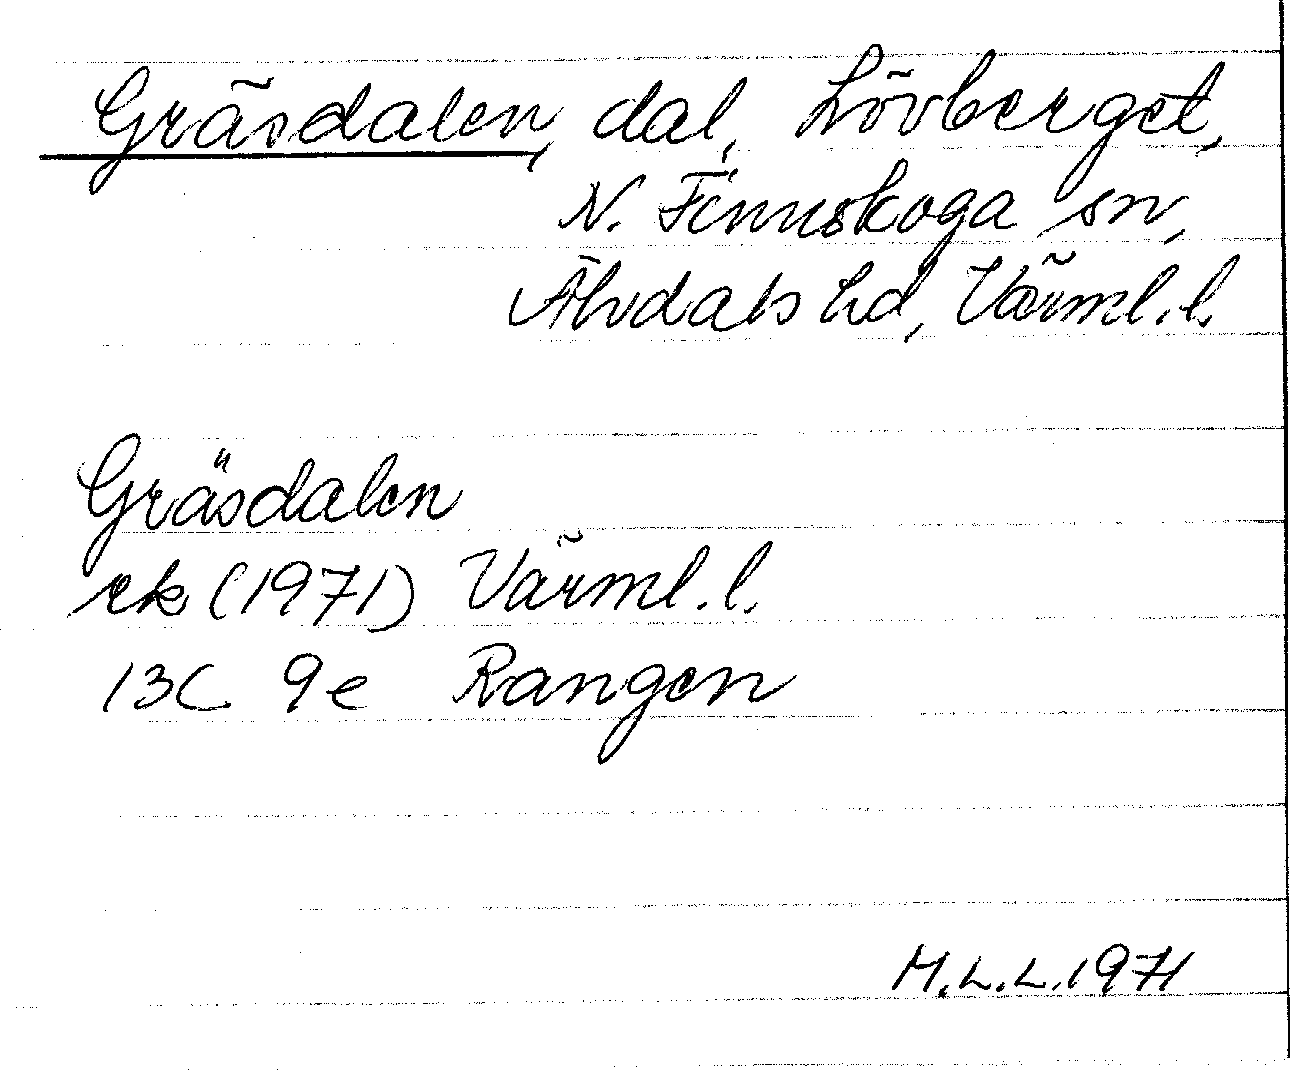 Gräsdalen, dal, Lövberget,
N. Finnskoga sn,
Älvdals hd, Värml. l.
Gräsdalen
rek (1971) Värml. l.
13C 9e Rangen
M.L.L. 1971